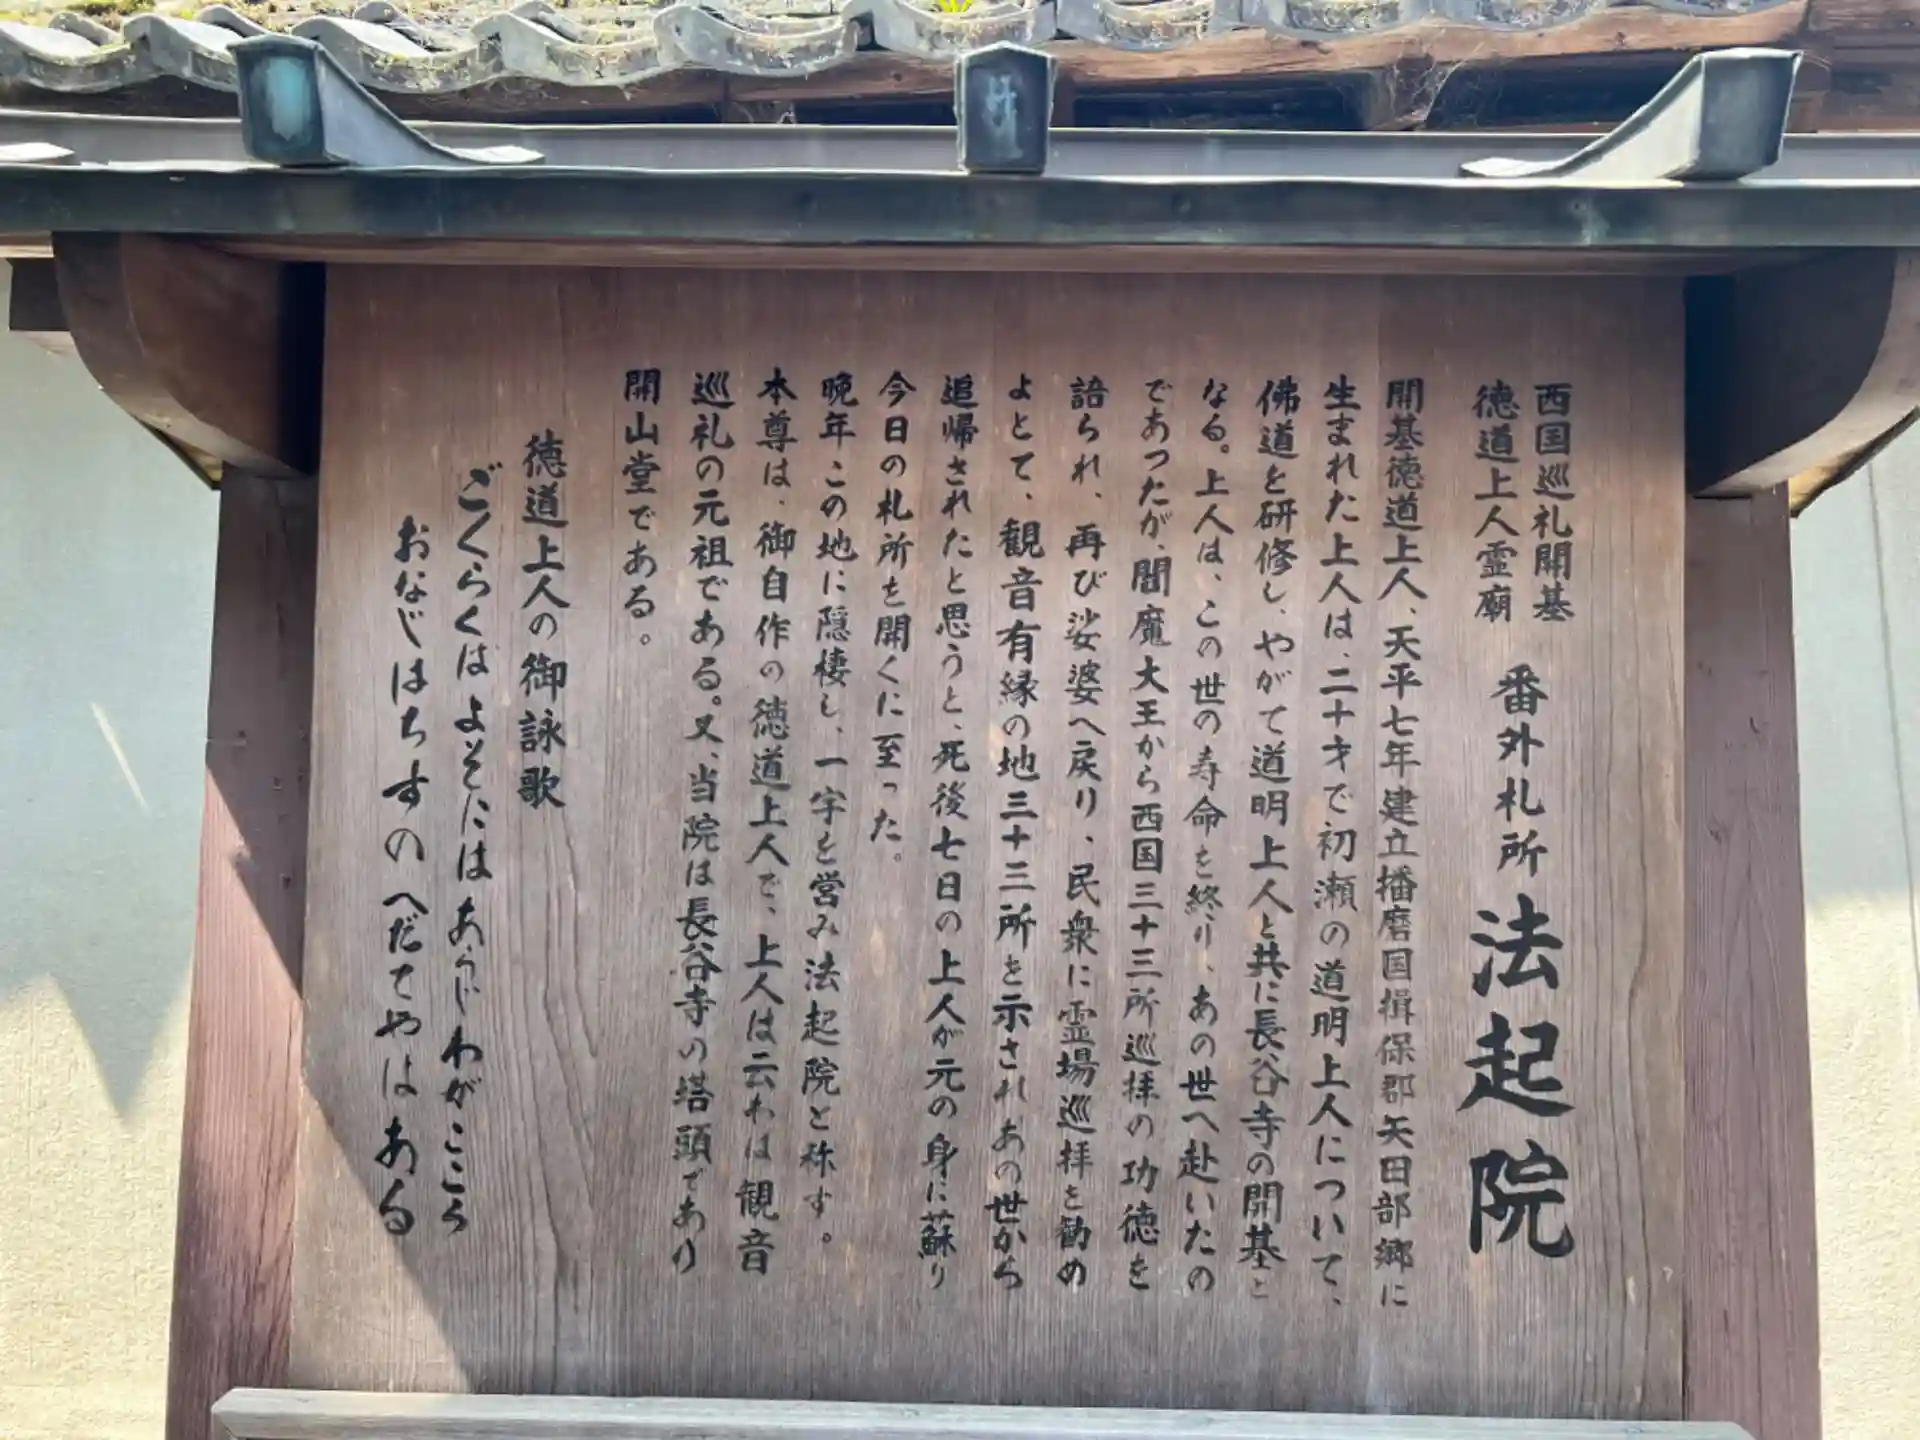 西国巡礼開基
徳道上人霊廟
番外札所 法起院
開基徳道上人、天平七年建立播磨国揖保郡矢田部郷に
生まれた上人は、二十才で初瀬の道明上人について、
佛道を研修し、やがて道明上人と共に長谷寺の開基と
なる。上人は、この世の寿命を終り、あの世へ赴いたの
であつたが、閻魔大王から西国三十三所巡拝の功徳を
語られ、再び娑婆へ戻り、民衆に霊場巡拝を勧め
よとて、観音有縁の地三十三所を示されあの世から
追帰されたと思うと、死後七日の上人が元の身に蘇り
今日の札所を開くに至った。
晩年この地に隠棲し、一宇を営み法起院と称す。
本尊は、御自作の徳道上人で、上人は云わば観音
巡礼の元祖である。又、当院は長谷寺の塔頭であり
開山堂である。
徳道上人の御詠歌
ごくらくはよそにはあらじわがこころ
おなじはちすのへだてやはある